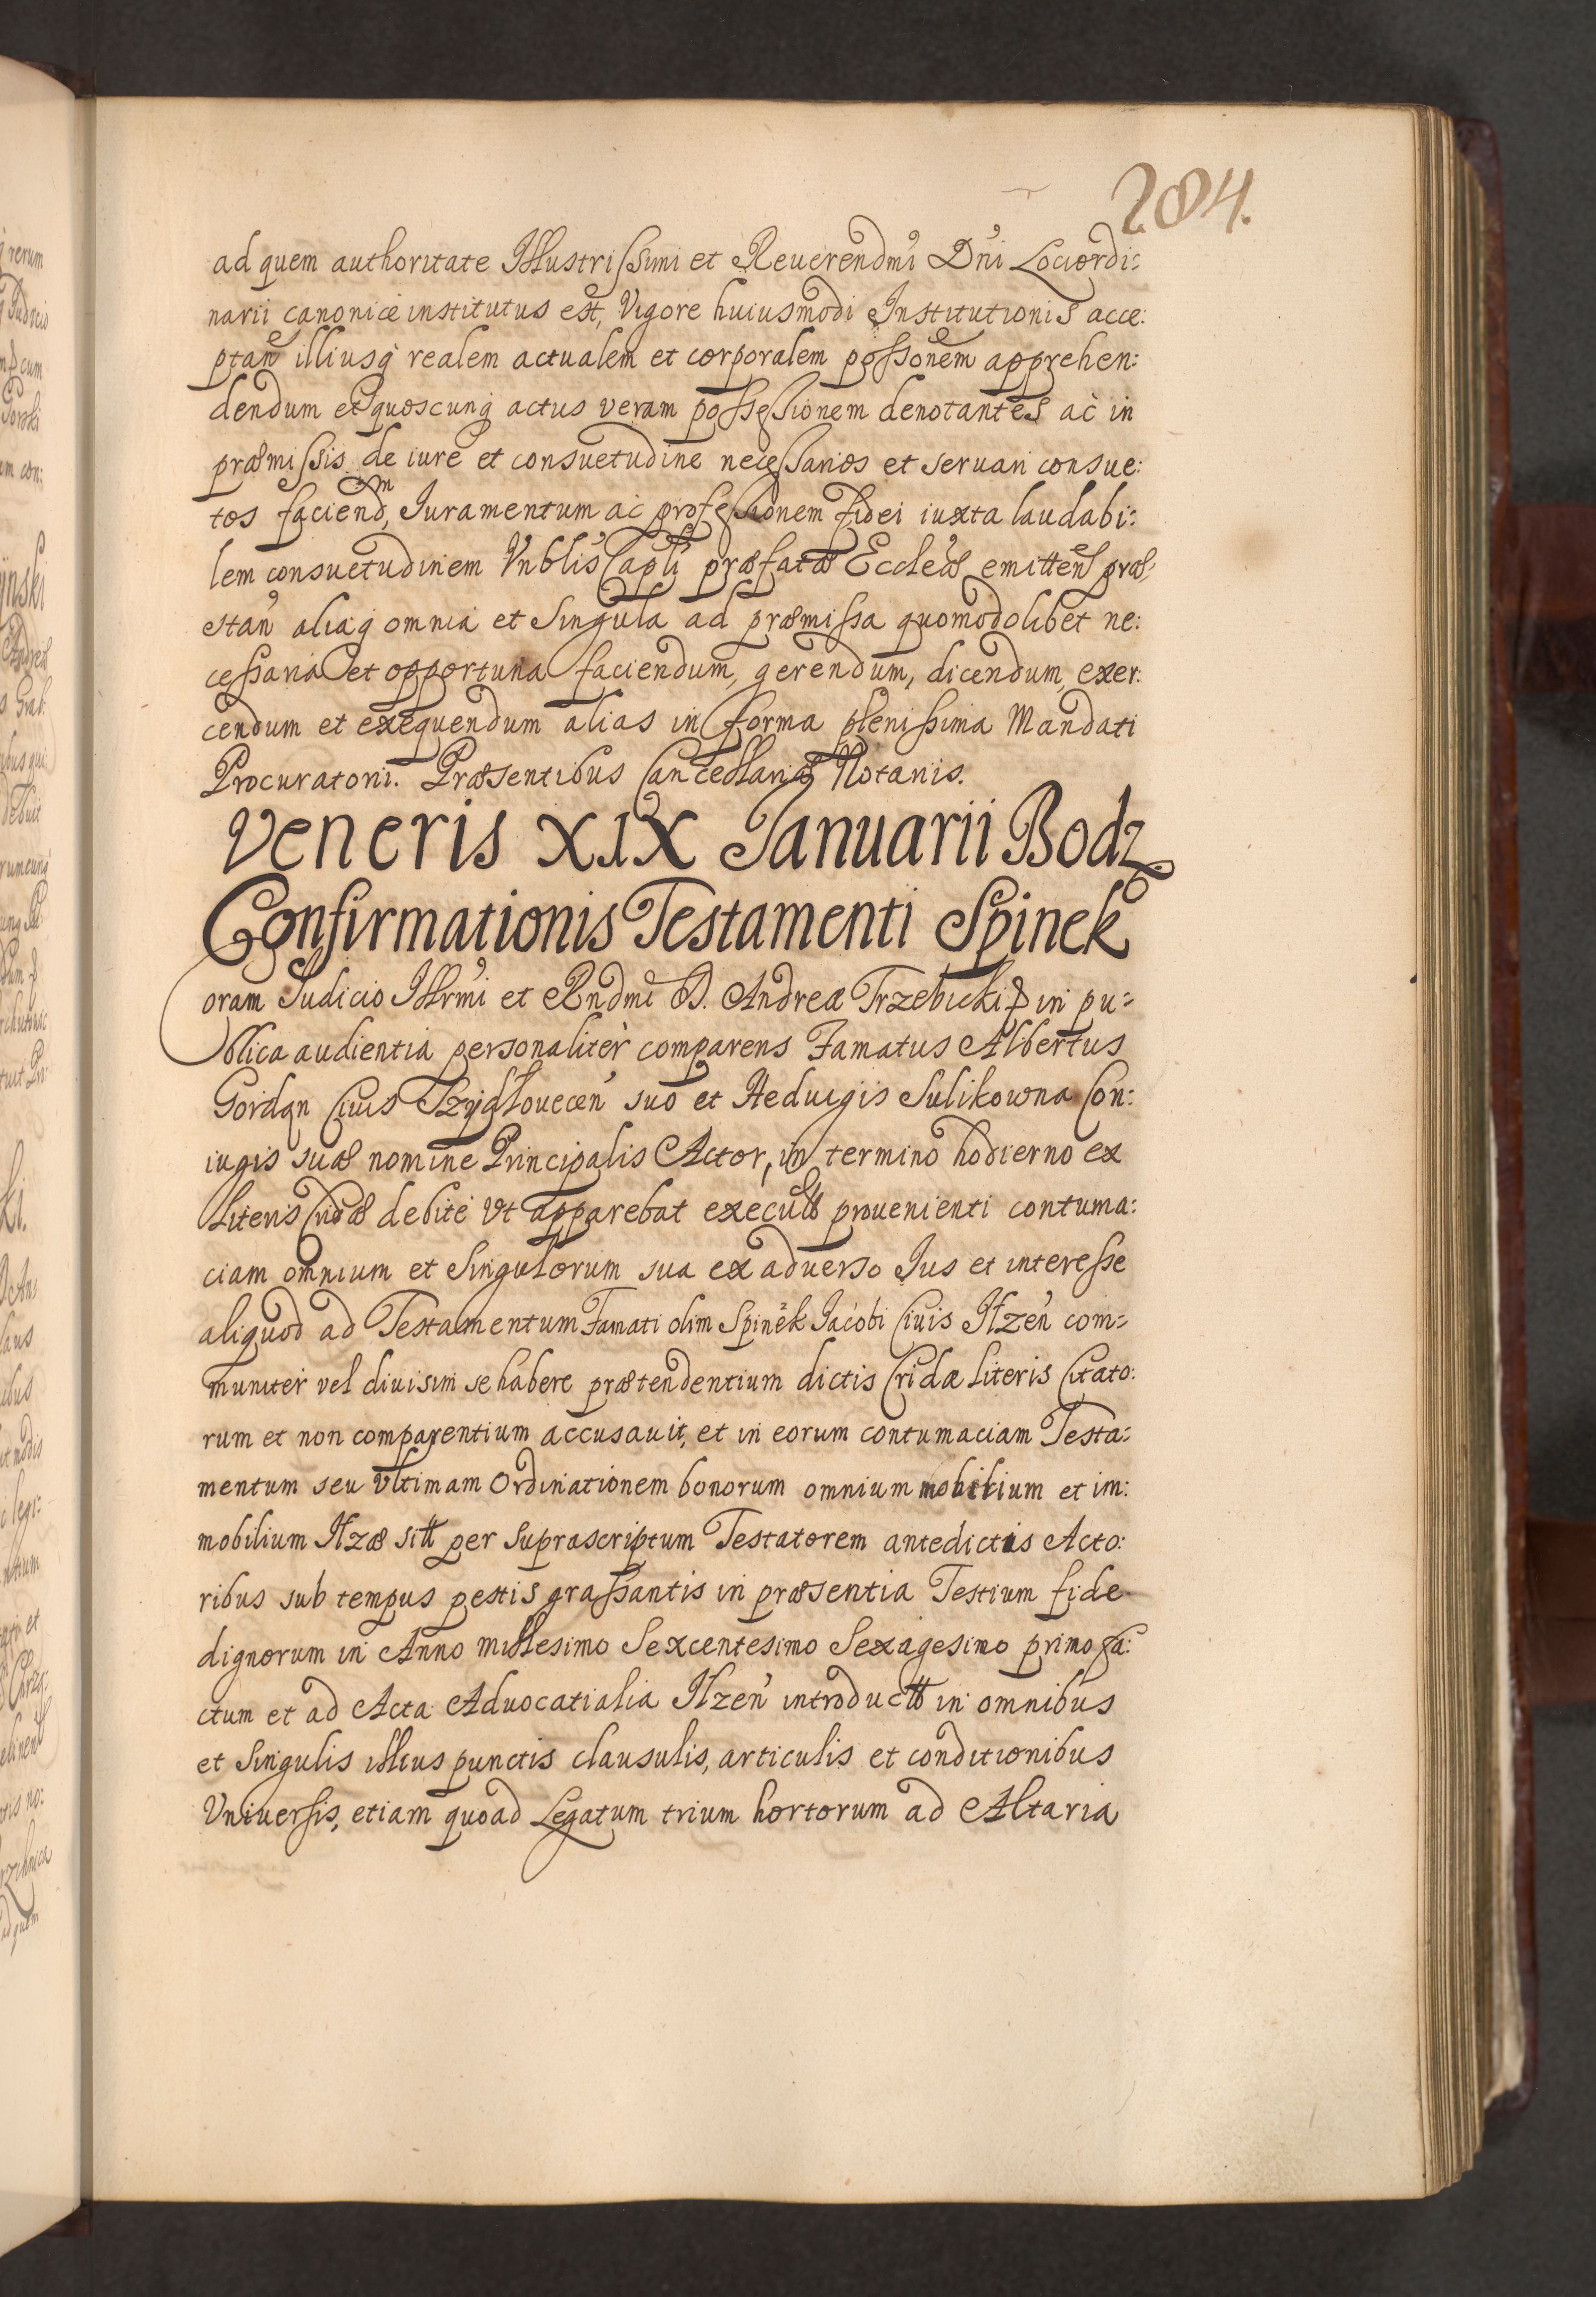 284.
ad quem authoritate Illustrissimi et Reuerendmi Dni Lociordi:
narii canonicè institutus est, Vigore huiusmodi Institutionis acce:
ptan illiusq realem actualem et corporalem possonem apprehen:
dendum et quoscunq actus veram possessionem denotantes ac in
præmissis de iure et consuetudine necessarios et seruari consue:
tos faciend, Iuramentum ac professionem fidei iuxta laudabi:
lem consuetudinem Vnblis Capli præfatæ Eccleæ emitten præ:
stan aliaq omnia et Singula ad præmissa quomodolibet ne:
cessaria et opportuna faciendum, gerendum, dicendum, exer:
cendum et exequendum alias in forma plenissima Mandati
Procuratorii. Præsentibus Cancellariæ Notariis.
Veneris XIX Ianuarii Bodz
Confirmationis Testamenti Spinek
Coram Iudicio Illrmi et Rndmi D. Andreæ Trzebicki in pu:
blica audientia personalitèr comparens Famatus Albertus
Gordan Ciuis Szydlouecen suo et Heduigis Sulikowna Con:
iugis suæ nomine Principalis Actor, in termino hodierno ex
Literis Cridæ debitè Vt apparebat execut prouenienti contuma:
ciam omnium et Singulorum sua ex aduerso Ius et interesse
aliquod ad Testamentum Famati olim Spinek Iacobi Ciuis Ilzen com:
munitèr vel diuisim se habere prætendentium dictis Cridæ literis Citato:
rum et non comparentium accusauit, et in eorum contumaciam Testa:
mentum seu Vltimam Ordinationem bonorum omnium mobilium et im:
mobilium Ilzæ sitt per Suprascriptum Testatorem antedictis Acto:
ribus sub tempus pestis grassantis in præsentia Testium fide
dignorum in Anno millesimo Sexcentesimo Sexagesimo primo fa:
ctum et ad Acta Aduocatialia Ilzen introductt in omnibus
et Singulis illius punctis clausulis, articulis et conditionibus
Vniuersis, etiam quoad Legatum trium hortorum ad Altaria